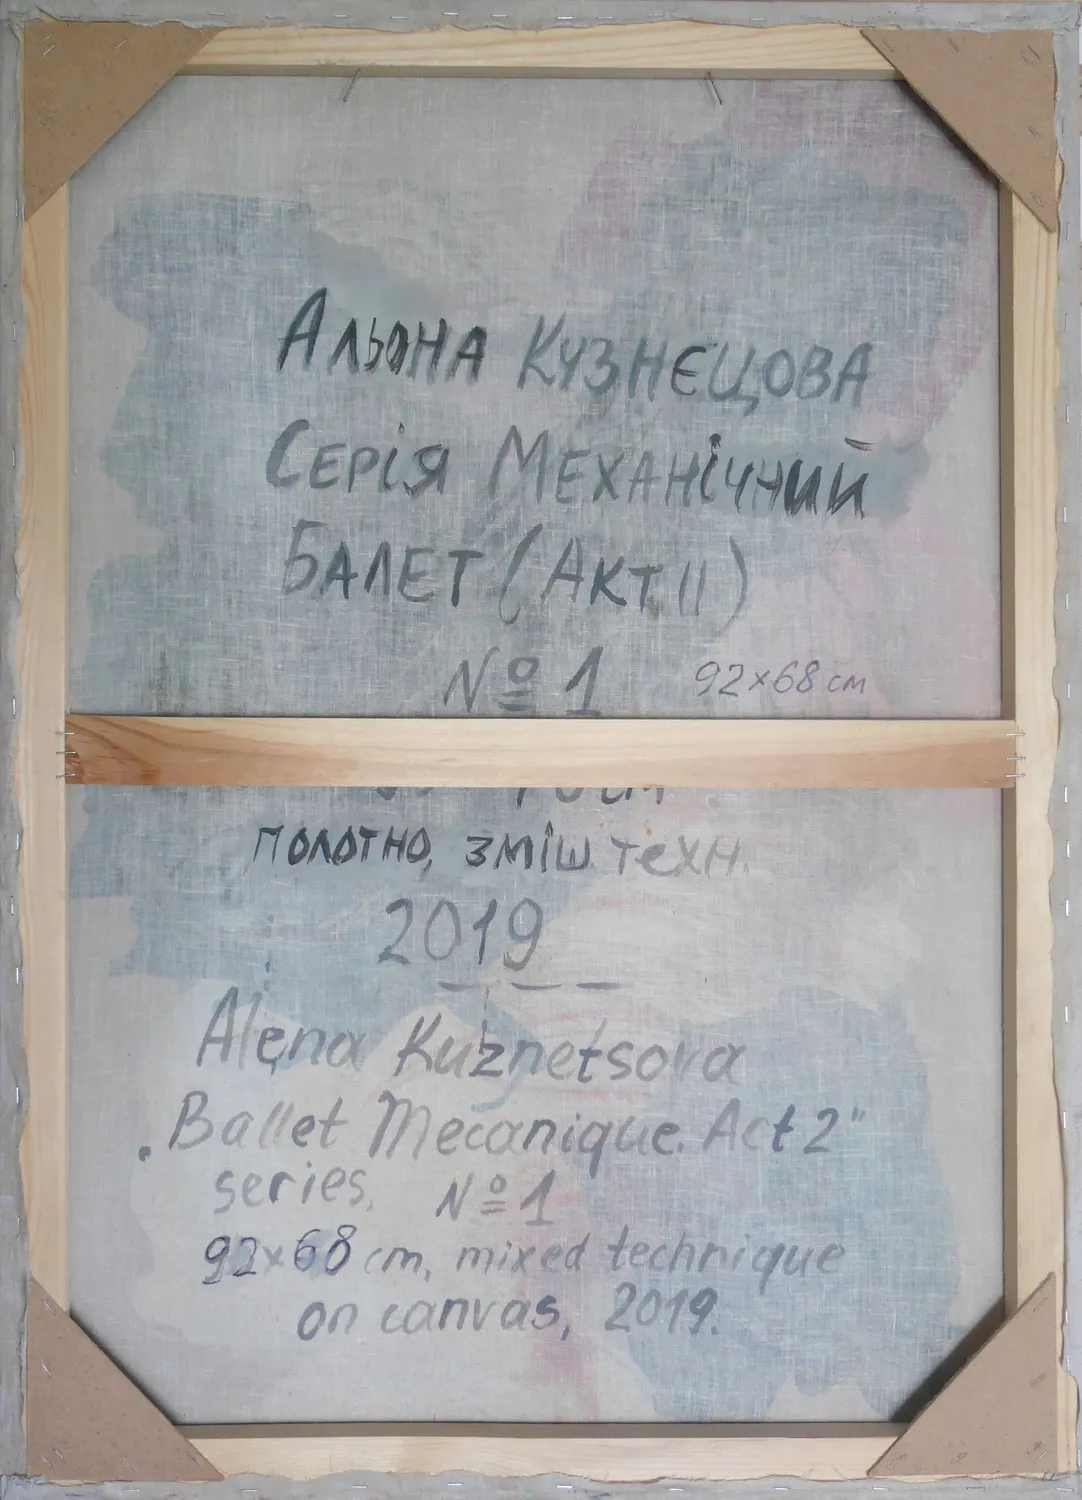 Альона Кузнєцова
Серія Механічний
Балет (Акт II)
№ 1
92×68 см
полотно, зміш. техн.
2019
Alena Kuznetsova
„Ballet Mecanique. Act 2"
series, № 1
92×68 cm, mixed technique
on canvas, 2019.